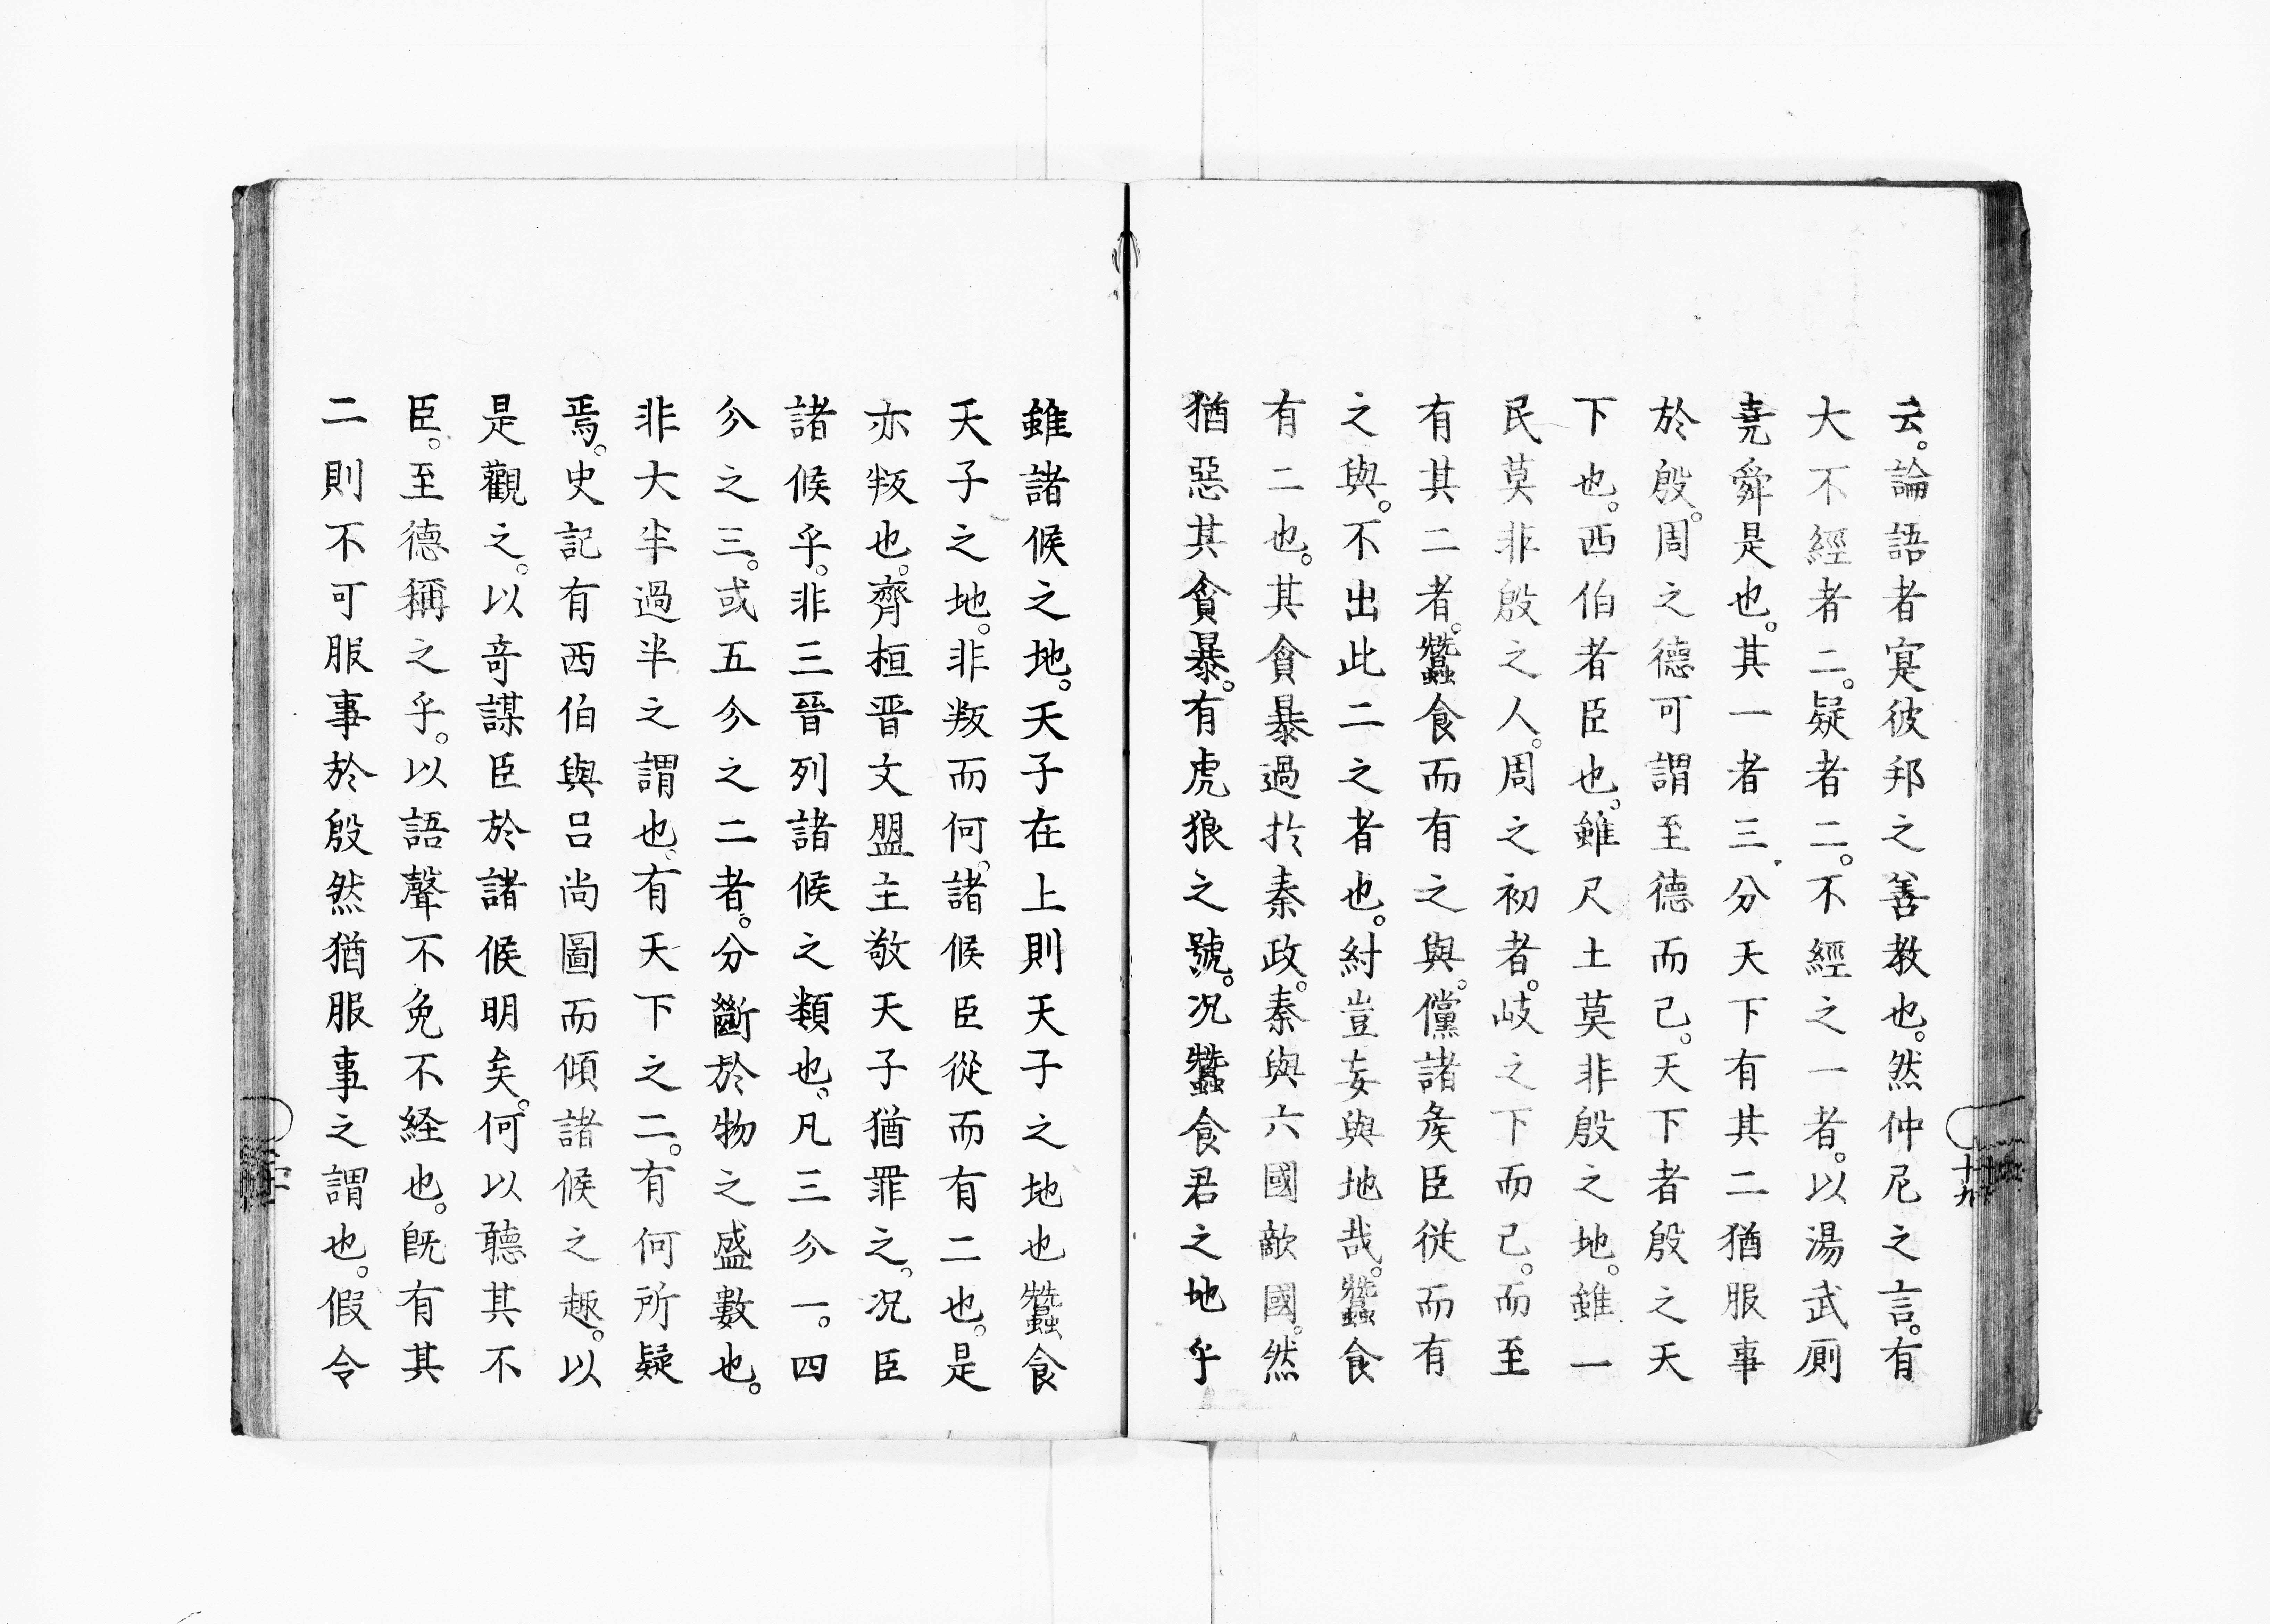 云。論語者寔彼邦之善教也。然仲尼之言。有
大不經者二。疑者二。不經之一者。以湯武厠
堯舜是也。其一者三分天下有其二猶服事
於殷。周之德可謂至德而已。天下者殷之天
下也。西伯者臣也。雖尺土莫非殷之地。雖一
民莫非殷之人。周之初者。岐之下而已。而至
有其二者。蠶食而有之與。儻諸矦臣從而有
之與。不出此二之者也。紂豈妄與地哉。蠶食
有二也。其貪暴過於秦政。秦與六國敵國。然
猶惡其貪暴。有虎狼之號。況蠶食君之地乎
雖諸候之地。天子在上則天子之地也蠶食
天子之地。非叛而何。諸候臣從而有二也。是
亦叛也。齊桓晋文盟主敬天子猶罪之。況臣
諸候乎。非三晉列諸候之類也。凡三分一。四
分之三。或五分之二者。分斷於物之盛數也。
非大半過半之謂也。有天下之二。有何所疑
焉。史記有西伯與呂尚圖而傾諸候之趣。以
是觀之。以竒謀臣於諸候明矣。何以聽其不
臣。至德稱之乎。以語聲不免不経也。既有其
二則不可服事於殷然猶服事之謂也。假令